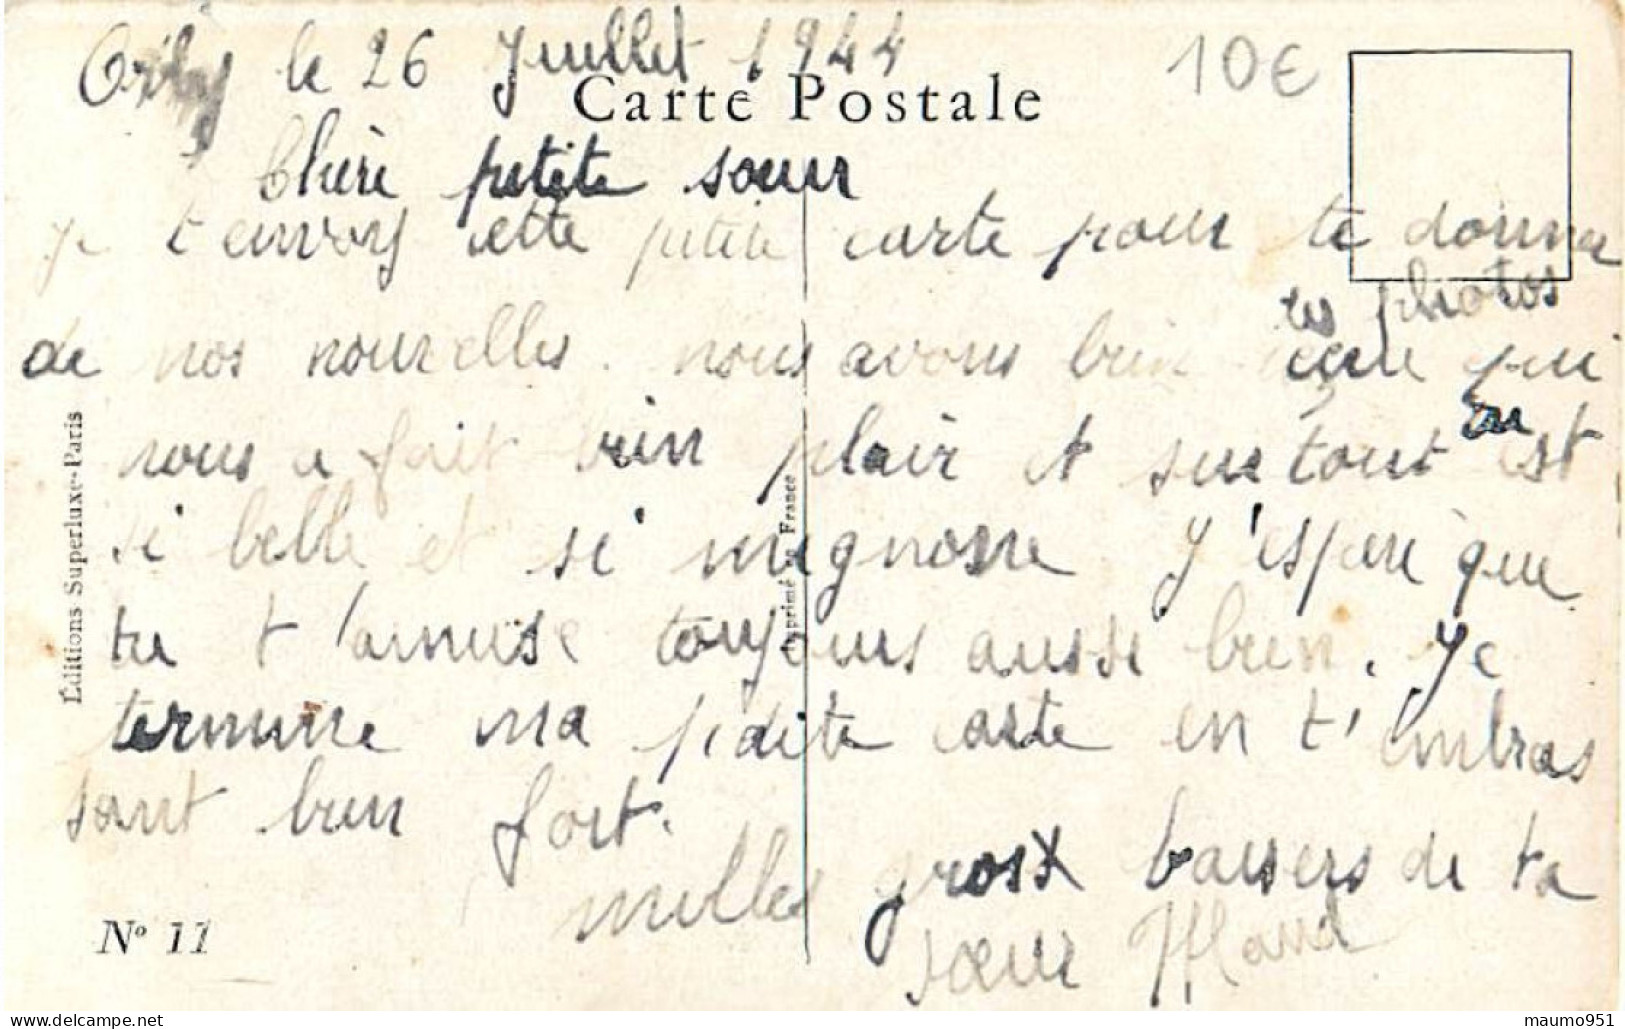 le 26 Juillet 1944
10€
Carte Postale
Chère petite sœur
je t'envoy cette petite carte pour te donner
les photos
de nos nouvelles. nous avons bien reçue qui
nous a fait bien plair et surtout tu est
si belle et si mignonne J'espère que
tu t'amuse toujours aussi bien. Je
termine ma petite carte en t'embras
sant bien fort.
milles gros baisers de ta
sœur
Éditions Superluxe-Paris
Imprimé en France
N° 11
maumo951